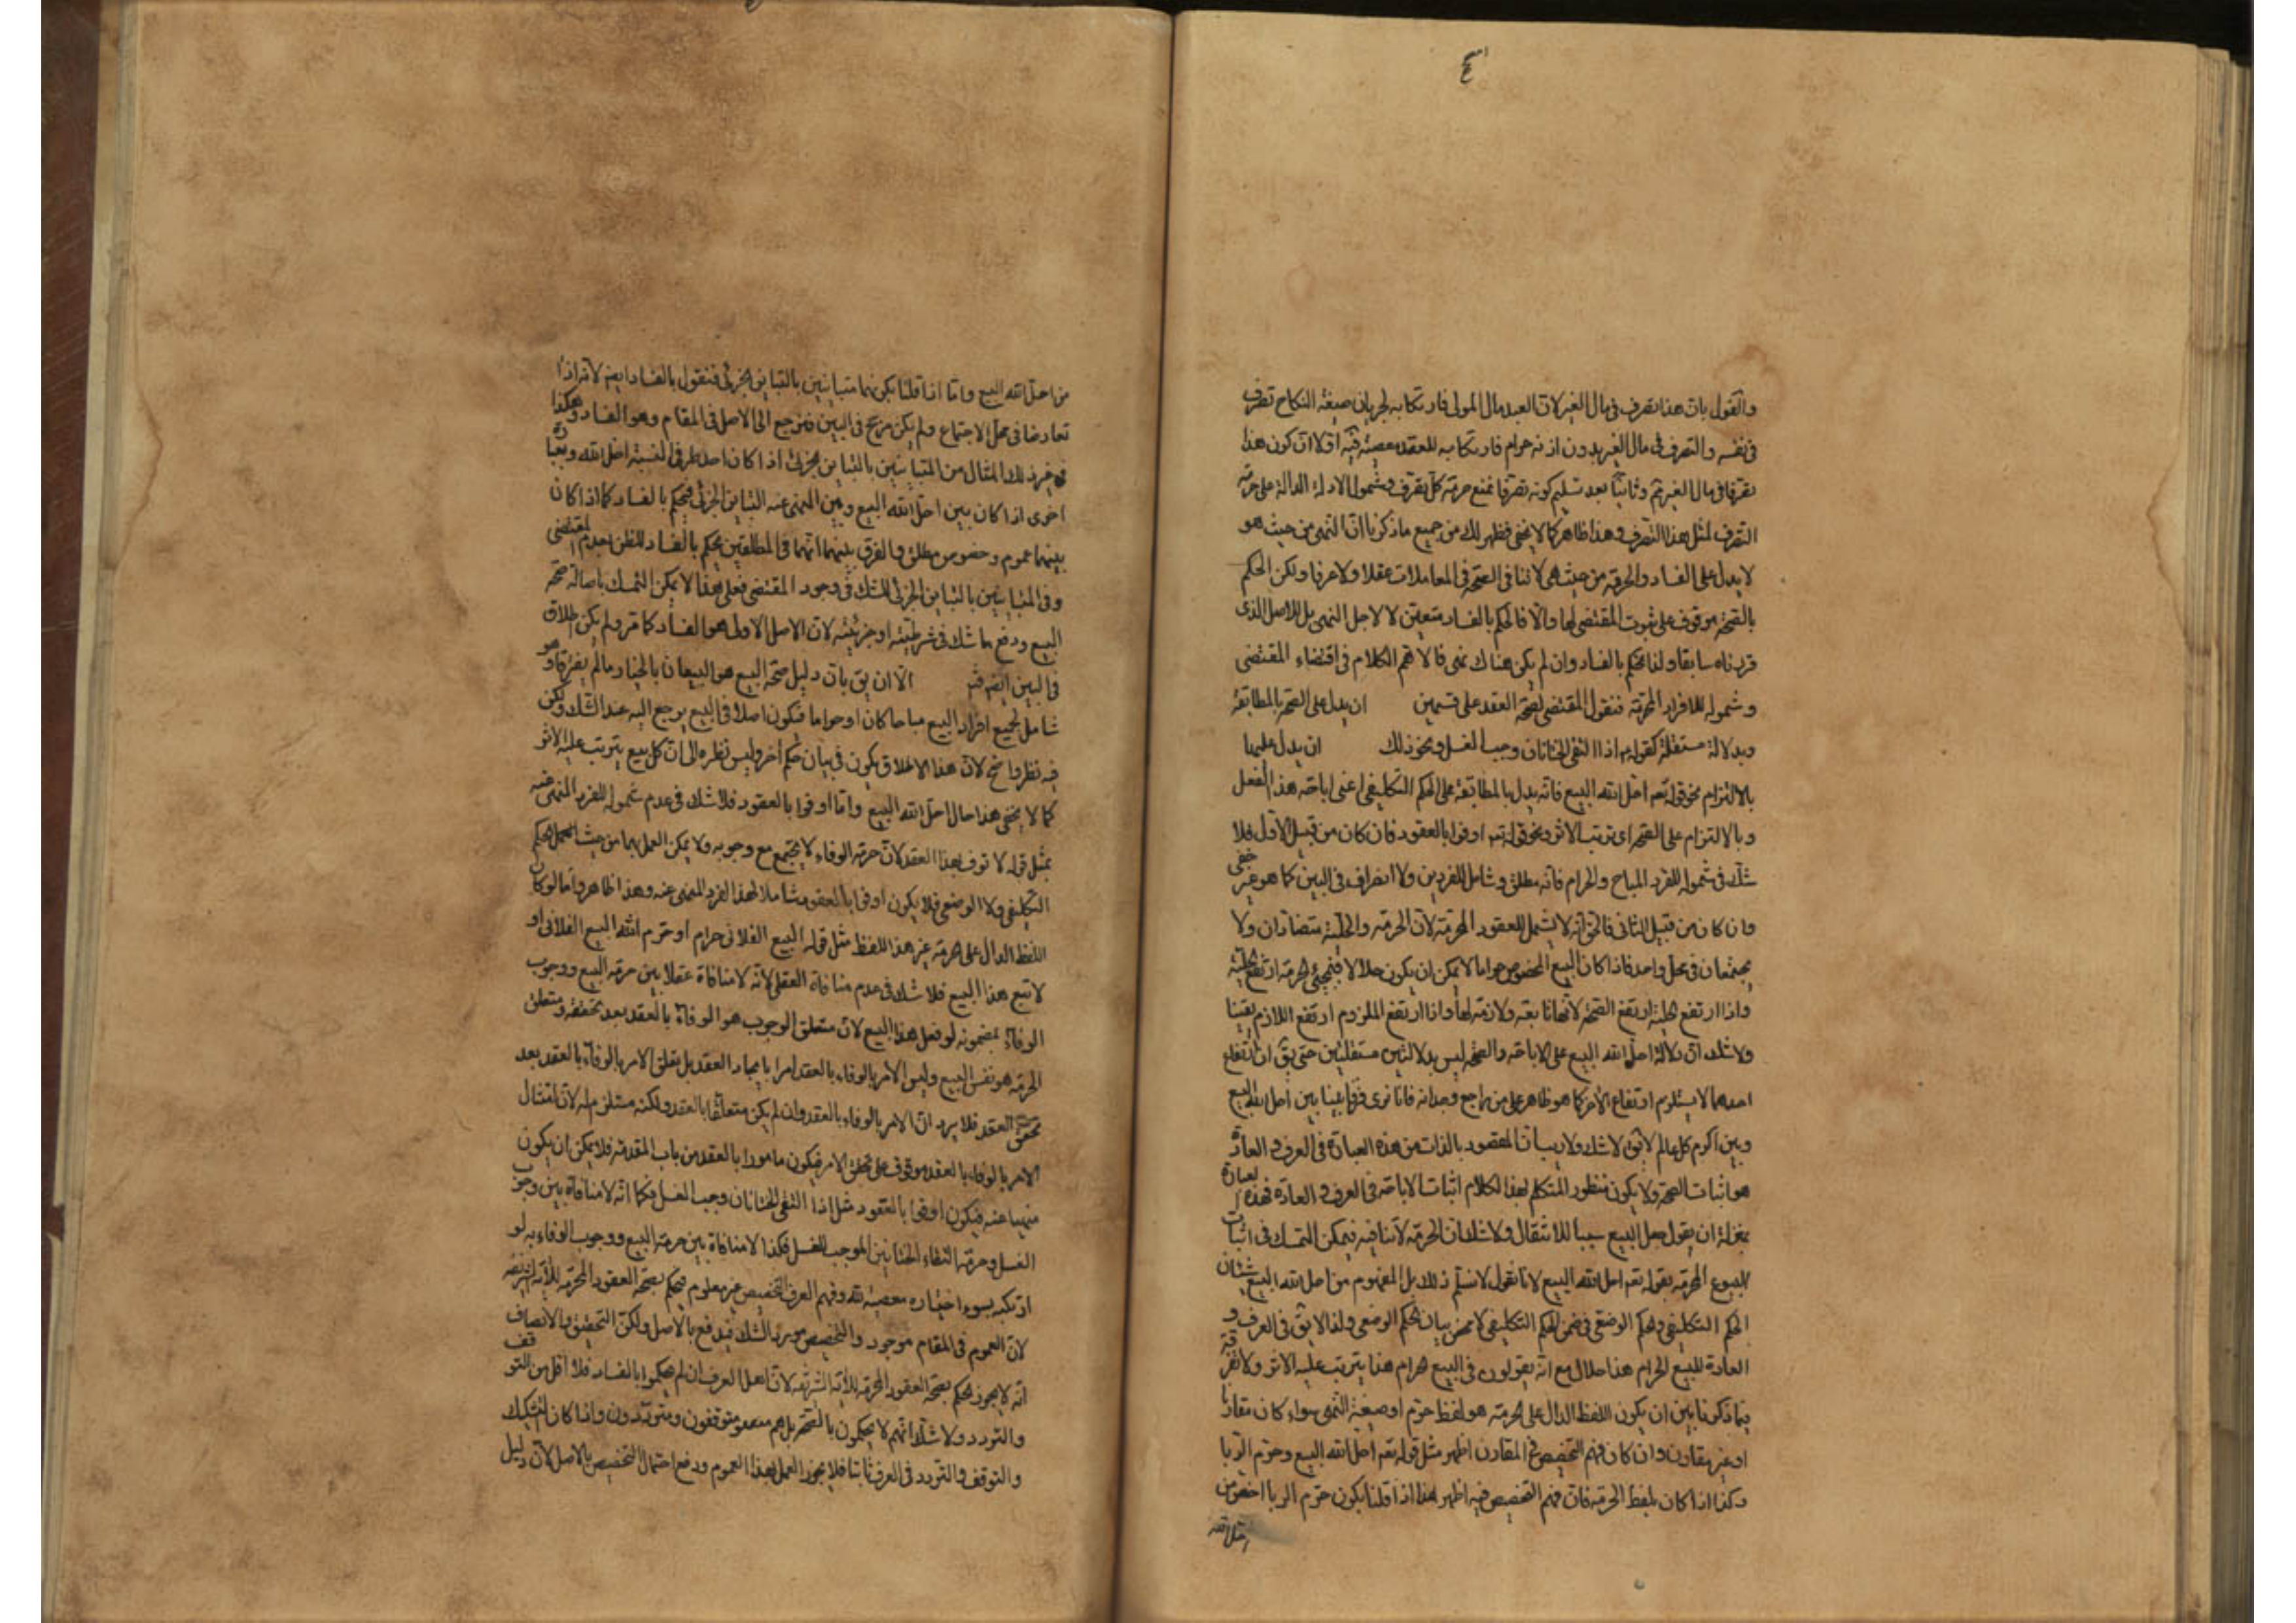 والقول بان هذا تصرف فی مال الغیر لان العبد مال المولی فارتکابه لجریان صیغة النکاح تصرف
فی نفسه والتصرف فی مال الغیر بدون اذنه حرام فارتکابه للعقد معصیة فیه اولا ان کون هذا
تصرفا فی مال الغیر ثم وثانیا بعد تسلیم کونه تصرفا نمنع حرمة کل تصرف وشمول الادلة الدالة علی حرمة
التصرف لمثل هذا التصرف وهذا ظاهر کما لا یخفی فظهر لک من جمیع ما ذکرنا ان النهی من حیث هو
لا یدل علی الفساد والحرمة من حیث هی لا تنافی الصحة فی المعاملات عقلا ولا عرفا ولکن الحکم
بالصحة موقوف علی ثبوت المقتضی لها والا فالحکم بالفساد متعین لا لاجل النهی بل للاصل الذی
قررناه سابقا ولذا نحکم بالفساد وان لم یکن هناک نهی فالاهم الکلام فی اقتضاء المقتضی
وشموله للافراد المحرمة فنقول المقتضی لصحة العقد علی قسمین ان یدل علی الصحة بالمطابقة
وبدلالة مستقلة کقوله اذا التقی الختانان وجب الغسل ونحو ذلک ان یدل علیها
بالالتزام نحو قوله تعه احل الله البیع فانه یدل بالمطابقة علی الحکم التکلیفی اعنی اباحة هذا الفعل
وبالالتزام علی الصحة ای ترتب الاثر ونحو قوله تعه اوفوا بالعقود فان کان من قبیل الاول فلا
شک فی شموله للفرد المباح والحرام فانه مطلق وشامل للفردین ولا انصراف فی البین کما هو غیر خفی
وان کان من قبیل الثانی فالحق انه لا یشمل للعقود المحرمة لان الحرمة والحلیة متضادان ولا
یجتمعان فی محل واحد فاذا کان البیع المخصوص حراما لا یمکن ان یکون حلالا فبمجئ الحرمة ارتفع الحلیة
واذا ارتفع الحلیة ارتفع الصحة لانها تابعة ولازمة لها واذا ارتفع الملزوم ارتفع اللازم یقینا
ولا شک ان دلالة احل الله البیع علی الاباحة والصحة لیس بدلالتین مستقلتین حتی یق ان ارتفاع
احدهما لا یستلزم ارتفاع الاخر کما هو ظاهر علی من راجع وجدانه فانا نری فرقا بینا بین احل الله البیع
وبین اکرم کل عالم لا یق لا شک ولا ریب ان المقصود بالذات من هذه العبارة فی العرف و العادة
هو اثبات الصحة ولا یکون منظور المتکلم بهذا الکلام اثبات الاباحة فی العرف و العادة فهذه العبارة
بمنزلة ان یقول جعل البیع سببا للانتقال ولا شک ان الحرمة لا تنافیه فیمکن التمسک فی اثبات
البیوع المحرمة بقوله تعه احل الله البیع لانا نقول لا نسلم ذلک بل المفهوم من احل الله البیع شیئان
الحکم التکلیفی والحکم الوضعی فی ضمن الحکم التکلیفی لا محض بیان الحکم الوضعی ولذا لا یق فی العرف و
العادة للبیع الحرام هذا حلال مع انه یقولون فی البیع حرام هذا یترتب علیه الاثر ولا فرق
فیما ذکرنا بین ان یکون اللفظ الدال علی الحرمة هو لفظ حرم او صیغة النهی سواء کان مقارنا
او غیر مقارن وان کان فهم التخصیص فی المقارن اظهر مثل قوله تعه احل الله البیع وحرم الربا
وکذا اذا کان بلفظ الحرمة فان فهم التخصیص فیه اظهر هذا اذا قلنا بکون حرم الربا اخص من
من احل الله البیع واما اذا قلنا بکونهما متباینین بالتباین الجزئی فنقول بالفساد ایضا لانه اذا
تعارضا فی محل الاجتماع ولم یکن مرجح فی البین فنرجع الی الاصل فی المقام وهو الفساد وهکذا
فی غیر ذلک المثال من المتباینین بالتباین الجزئی اذا کان احد طرفی النسبة احل الله وبعبارة
اخری اذا کان بین احل الله البیع وبین المنهی عنه التباین الجزئی فیحکم بالفساد کما اذا کان
بینهما عموم وخصوص مطلق والفرق بینهما انهما فی المطلقین یحکم بالفساد للظن بعدم المقتضی
وفی المتباینین بالتباین الجزئی للشک فی وجود المقتضی فعلی هذا لا یمکن التمسک باصالة صحة
البیع ودفع ما شک فی شرطیته او جزئیته لان الاصل الاولی هو الفساد کما مر ولم یکن اطلاق
فی البین الا ان یق بان دلیل صحة البیع هو البیعان بالخیار ما لم یفترقا وهو
شامل لجمیع افراد البیع مباحا کان او حراما فیکون اصلا فی البیع یرجع الیه عند الشک ولکن
فیه نظر واضح لان هذا الاطلاق یکون فی بیان حکم اخر ولیس نظره الی ان کل بیع یترتب علیه الاثر
کما لا یخفی هذا حال احل الله البیع واما اوفوا بالعقود فلا شک فی عدم شموله للفرد المنهی عنه
بمثل قوله لا توف بهذا العقد لان حرمة الوفاء لا یجتمع مع وجوبه ولا یمکن العمل بها من حیث الحکم
التکلیفی ولا الوضعی فلا یکون اوفوا بالعقود شاملا لهذا الفرد المنهی عنه وهذا ظاهر واما لو کان
اللفظ الدال علی الحرمة غیر هذا اللفظ مثل قوله البیع الفلانی حرام او حرم الله البیع الفلانی او
لا تبع هذا البیع فلا شک فی عدم منافاة العقل لانه لا منافاة عقلا بین حرمة البیع ووجوب
الوفاء بمضمونه لو فعل هذا البیع لان متعلق الوجوب هو الوفاء بالعقد بعد تحققه ومتعلق
الحرمة هو نفس البیع ولیس الامر بالوفاء بالعقد امرا بایجاد العقد بل یتعلق الامر بالوفاء بالعقد بعد
تحقق العقد فلا یرد ان الامر بالوفاء بالعقد وان لم یکن متعلقا بالعقد ولکنه مستلزم له لان امتثال
الامر بالوفاء بالعقد موقوف علی تحقق الامر فیکون مامورا بالعقد من باب المقدمة فلا یمکن ان یکون
منهیا عنه فیکون اوفوا بالعقود مثل اذا التقی الختانان وجب الغسل فکما انه لا منافاة بین وجوب
الغسل وحرمة التقاء الختانین الموجب للغسل فکذا لا منافاة بین حرمة البیع ووجوب الوفاء به لو
ارتکبه بسوء اختیاره معصیة لله وفهم العرف التخصیص غیر معلوم فیحکم بصحة العقود المحرمة للآیة الشریفة
لان العموم فی المقام موجود والتخصیص مورد الشک فیدفع بالاصل ولکن التحقیق والانصاف
انه لا یجوز الحکم بصحة العقود المحرمة للآیة الشریفة لان اهل العرف ان لم یحکموا بالفساد فلا اقل من التوقف
والتردد ولا شک انهم لا یحکمون بالصحة بل هم متوقفون ومترددون واذا کان التشکیک
والتوقف والتردد فی العرف ثابتا فلا یجوز العمل بهذا العموم ودفع احتمال التخصیص بالاصل لان دلیل